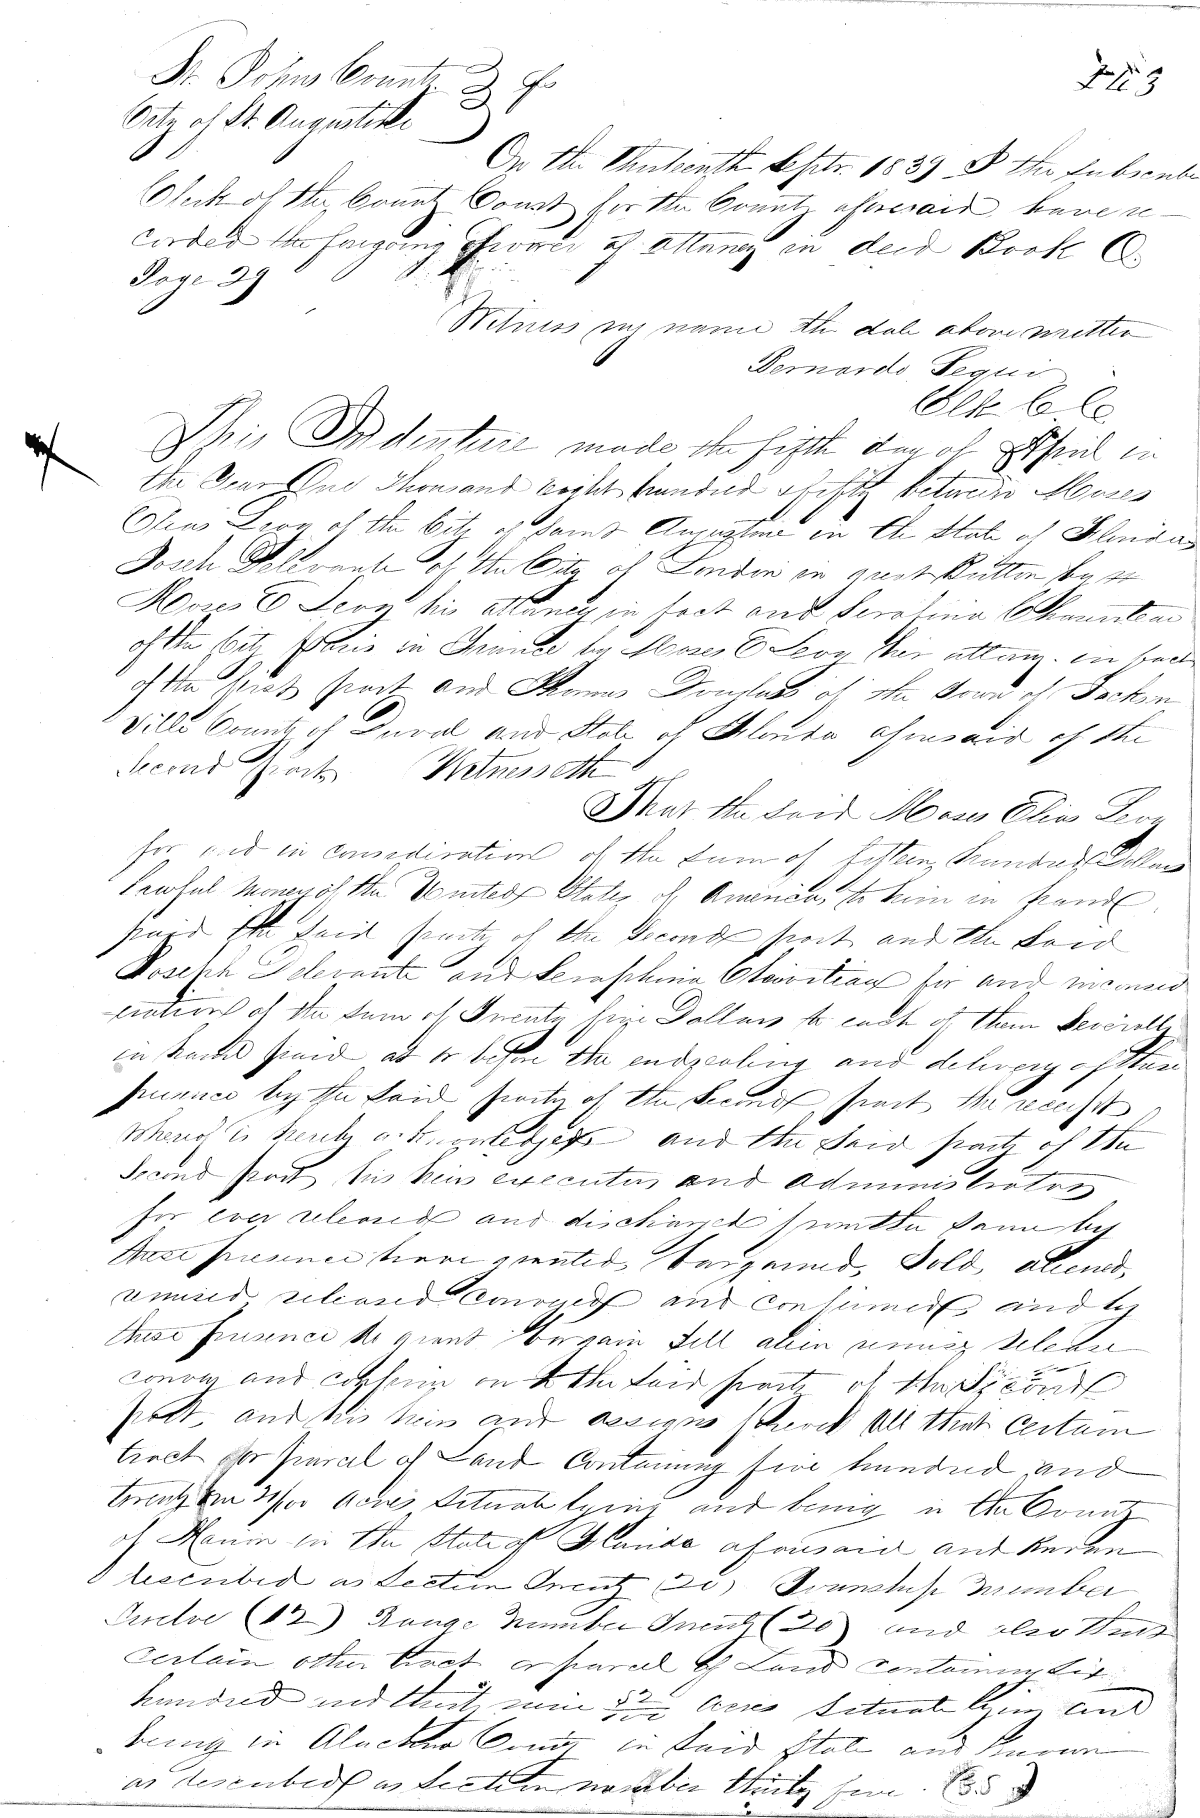 St. Johns County
City of St. Augustine
On the Thirteenth Septr. 1839 I the subscribe
Clerk of the County Court for the County aforesaid have re-
corded the forgoing power of attorney in deed Book O.
Page 29
Witness my name the date above written
Bernardo Segui
Clk C. C
This Indenture made the fifth day of April in
the Year One Thousand eight hundred & fifty between Moses
Elias Levy of the City of Saint Augustine in the State of Florida
Joseh Delevante of the City of London in great Britton by
Moses E Levy his attorney in fact and Serafina
of the City Paris in France by Moses E Levy her attorny. in fact
of the first part and Thomas Douglass of the Town of Jackson
ville County of Duval and State of Florida aforesaid of the
Second part Witnesseth
That the said Moses Elias Levy
for and in consideration of the sum of fifteen hundred Dollars
lawful money of the United States of America, to him in hand
paid the said party of the second part and the said
Joseph Delevante and Seraphina for and in consid
eration of the sum of Twenty five Dollars to each of them Severally
in hand paid at or before the and delivery of these
presence by the said party of the second part the receipt
whereof is hereby acknowledged and the said party of the
Second part his heirs executors and administrators
for ever released and discharged from the same by
these presence have granted, bargained, Sold, aliened,
remised released Conveyed and confirmed, and by
these presence do grant bargain sell alien remise release
convey and confirm on to the said party of the Second
part, and his heirs and assigns forever All that certain
tract or parcel of Land Containing five hundred and
twenty /100 Acres situate lying and being in the County
of Marion in the State of Florida aforesaid and known
described as Section Twenty (20) Township number
Twelve (12) Range number Twenty (20) and also that
certain other tract or parcel of Land containing six
hundred and thirty nine 52/100 Acres situate lying and
being in Alachua County in said State and known
as described as Section number thirty five. (35)